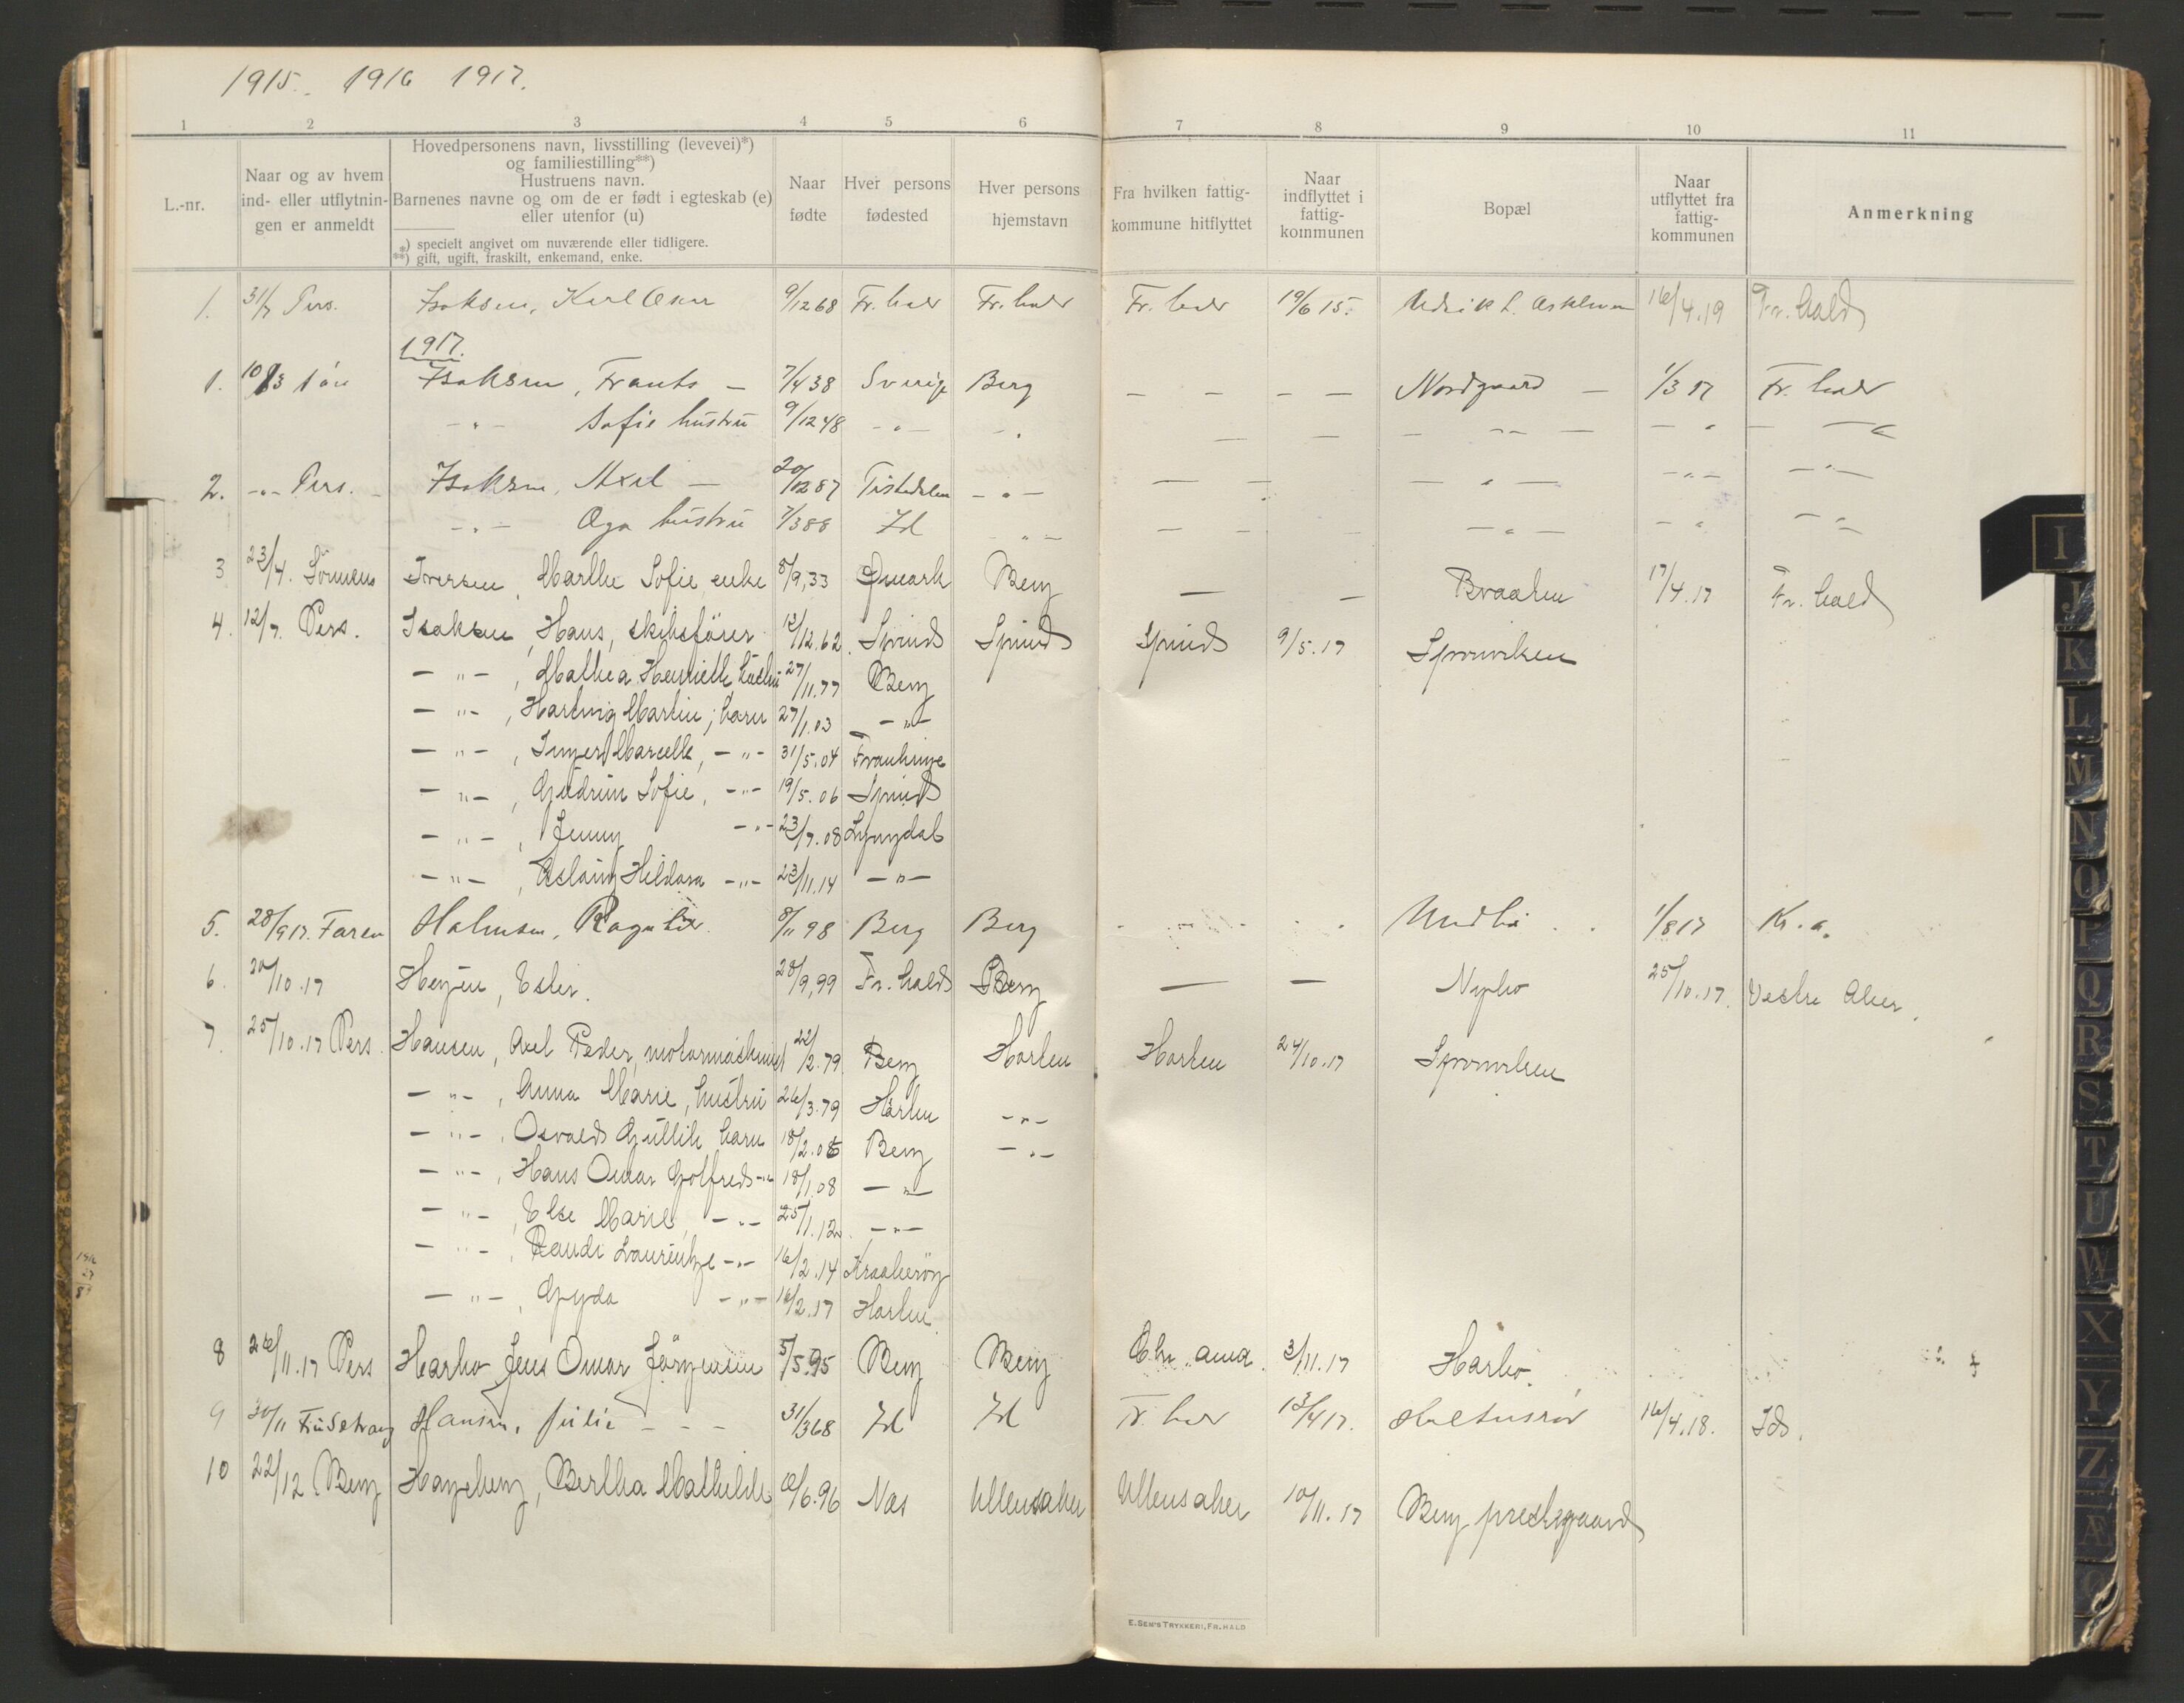 1915. 1916 1917.
1 2 3 4 5 6 7 8 9 10 11
L.-nr.
Naar og av hvem
ind- eller utflytnin-
gen er anmeldt
Hovedpersonens navn, livsstilling (levevei)*)
og familiestilling**)
Hustruens navn.
Barnenes navne og om de er født i egteskab (e)
eller utenfor (u)
*) specielt angivet om nuværende eller tidligere.
**) gift, ugift, fraskilt, enkemand, enke.
Naar
fødte
Hver persons
fødested
Hver persons
hjemstavn
Fra hvilken fattig-
kommune hitflyttet
Naar
indflyttet i
fattig-
kommunen
Bopæl
Naar
utflyttet fra
fattig-
kommunen
Anmerkning
1. 31/7 Pers. Isaksen, Karl Oskar 9/12 68 Fr. hald Fr. hald Fr. hald 19/6 15. 16/4.19 Fr. hald
1917.
1. 10/3 Isaksen, Frants — 7/4 38 Sverige Berg — — — — Nordgaard — 1/3 17 Fr. hald
—„— Sofie hustru 9/12 48 —„— —„ — — — —„— — —„— —„—
2. —„— Pers. — Isaksen, Axel — 20/12 87 Tistedalen —„— — — —„— —„— —„—
—„— Aga hustru 7/3 88 Id —„— — — —„— —„ —„—
3 23/4. Sønnens Iversen, Marthe Sofie, enke 8/9, 33 Qmark Berg — — Braaten 17/4.17 Fr. hald
4. 12/7. Pers. Isaksen, Hans, skibsfører 13/12.62. Spind Spind Spind 9/5.17 Sponviken
— „ — , Mathea Henriette hustru 27/11.77 Berg
— „ — , Hartvig Martin, barn 27/1.03 —„—
— „ — , Inger Marcelle, —„— 31/5.04
— „ — , Gudrun Sofie, —„— 19/5.06 Spind
— „ — , Jenny —„— 23/7.08 Lyngdal
— „ — , Aslaug Hildora —„— 23/11.14 —„—
5. 28/9 17. Faren Holmsen, Ragnhild 8/11 98 Berg Berg 1/8 17 Kr.a.
6. 20/10.17 28/9, 99 Fr. hald Berg — — Nybo 25/10.17. Vestre Aker.
7. 25/10.17 Pers. Hansen, Axel Peder, motormaskinist 22/2.79. Berg Horten Horten 24/10.17 Sponviken
— „ — , Anna Marie, hustru 26/3.79 Horten —„—
— „ — , Osvald Gullik barn 18/2.06 Berg —„—
— „ — , Hans Omar Gotfred —„— 18/1.08 —„—
— „ — , Else Marie, —„— 25/1.12. —„—
— „ — , Randi Laurentze —„— 16/2.14 Kraakerøy
— „ — , Gyda —„— 16/2.17 Horten
8 26/11.17 Pers Harbo Jens Omar Jørgensen 5/5.95 Berg Berg Chr. ania. 3/11.17 Harbo.
9 30/11 Hansen, Julie — — — 31/3 68 Id Id Fr. hald 13/4 17. 16/4.18. Id.
10 22/12 Berg Hageberg, Bertha Mathilde 10/6.96 Næs Ullensaker Ullensaker 10/11.17 Berg prestegaard
E. SEM'S TRYKKERI, FR.HALD
I
J
K
L
M
N
O
P
Q
R
S
T
U
W
X
Y
Z
Æ
Ø